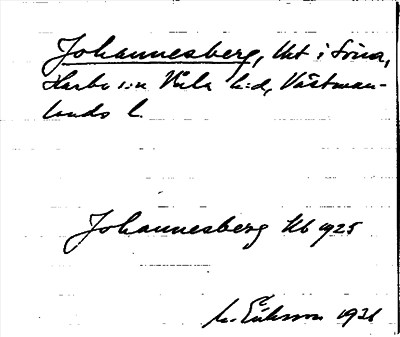 Johannesberg, Utt i Töna,
Harbo s:n Våla h:d, Västman-
lands l.
Johannesberg Ub 1925
M. Eriksson 1931